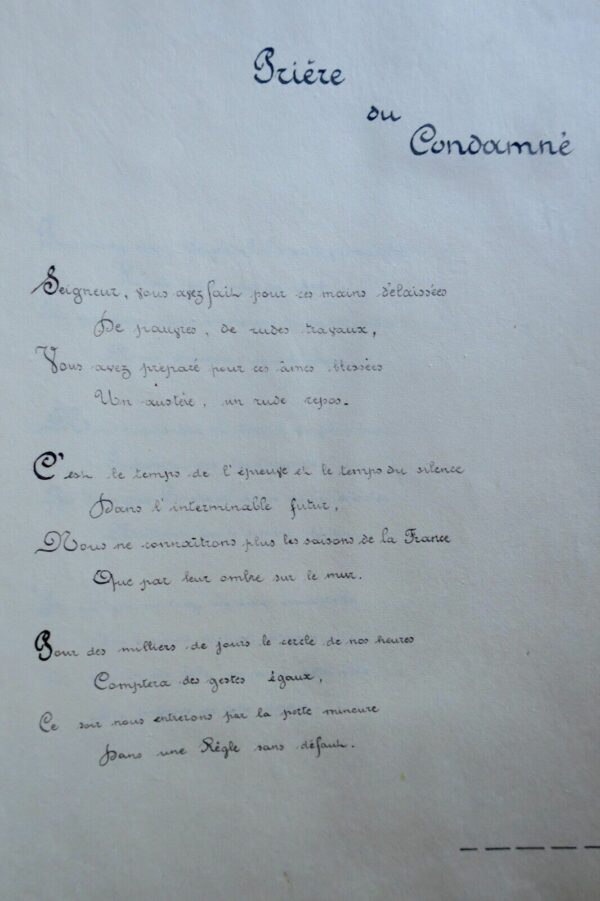 Prière
du
Condamné
Seigneur, vous avez fait pour ces mains délaissées
De pauvres, de rudes travaux,
Vous avez préparé pour ces âmes blessées
Un austère, un rude repos.
C'est le temps de l'épreuve et le temps du silence
Dans l'interminable futur,
Nous ne connaîtrons plus les saisons de la France
Que par leur ombre sur le mur.
Pour des milliers de jours le cercle de nos heures
Comptera des gestes égaux,
Ce soir nous entrerons par la porte mineure
Dans une Règle sans défaut.